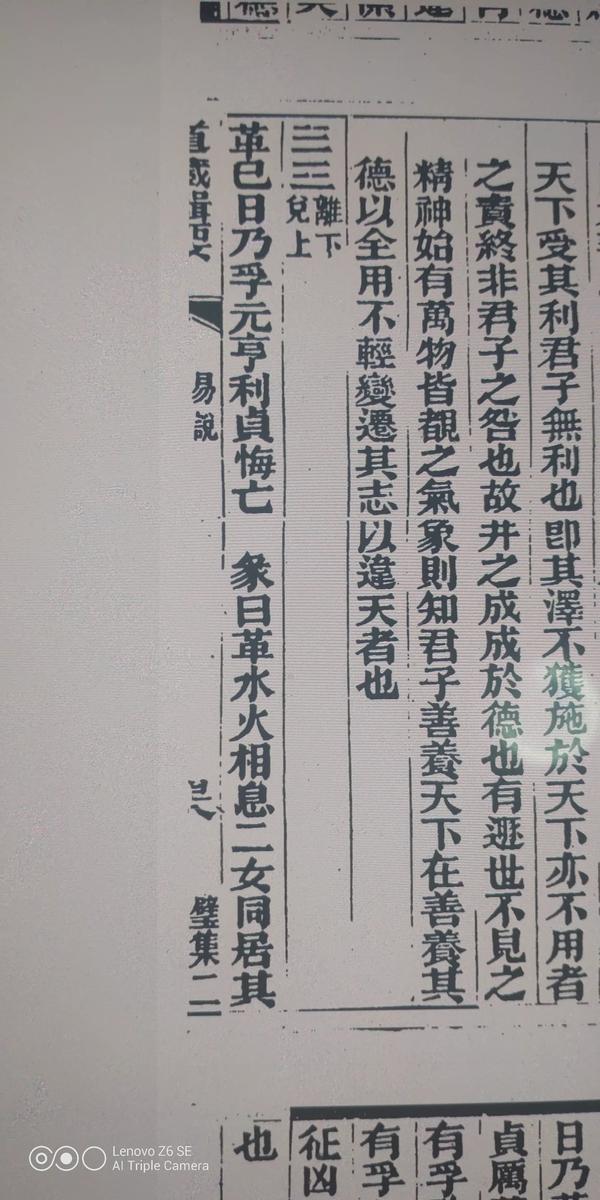 天下受其利君子無利也即其澤不獲施於天下亦不用者
之責終非君子之咎也故井之成成於德也有遯世不見之
精神始有萬物皆覩之氣象則知君子善養天下在善養其
德以全用不輕變遷其志以違天者也
離下
兌上
革已日乃孚元亨利貞悔亡　彖曰革水火相息二女同居其
道藏輯要
易說
璧集二
日乃
貞厲
有孚
有孚
征凶
也
Lenovo Z6 SE
AI Triple Camera